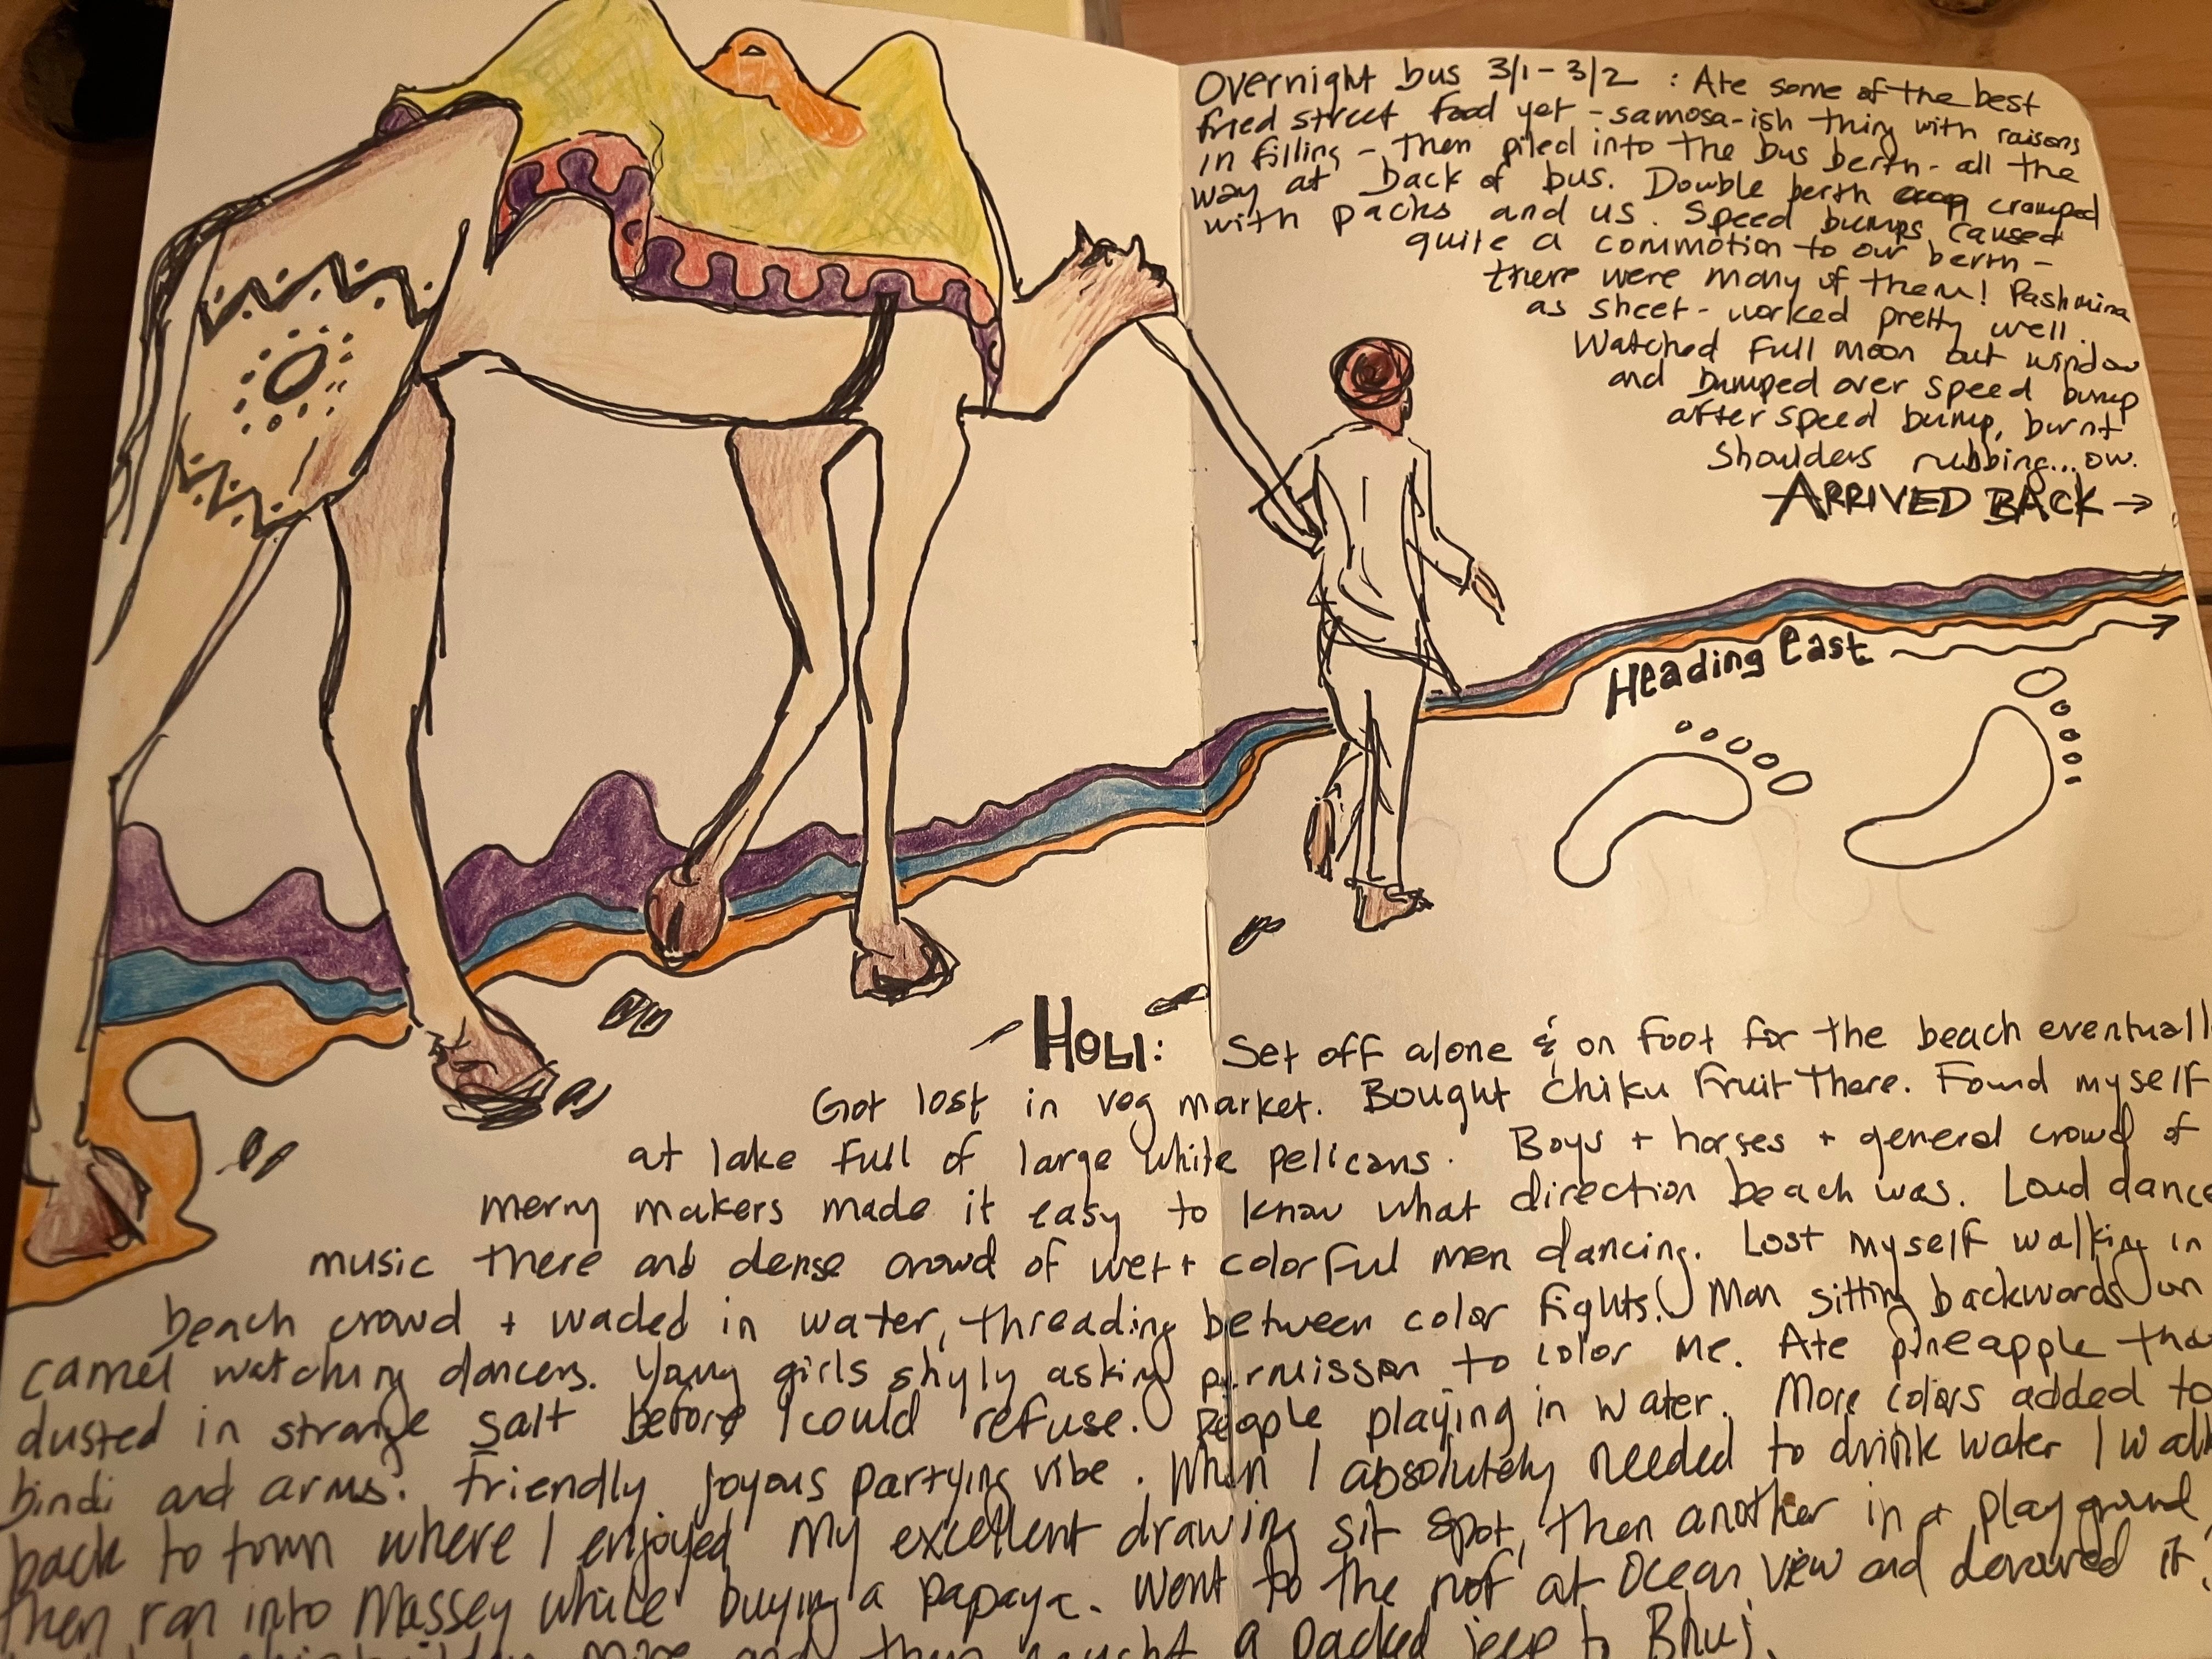 Overnight bus 3/1 - 3/2 : Ate some of the best
fried street food yet - samosa-ish thing with raisons
in filling - then piled into the bus berth - all the
way at back of bus. Double berth cramped
with packs and us. Speed bumps caused
quite a commotion to our berth -
there were many of them! Pashmina
as sheet - worked pretty well.
Watched full moon out window
and bumped over speed bump
after speed bump, burnt
shoulders rubbing... ow.
ARRIVED BACK →
Heading East
HOLI: Set off alone & on foot for the beach eventuall
Got lost in veg market. Bought chiku fruit there. Found myself
at lake full of large white pelicans. Boys + horses + general crowd of
merry makers made it easy to know what direction beach was. Loud dance
music there and dense crowd of wet + colorful men dancing. Lost myself walking in
beach crowd + waded in water, threading between color fights. Man sitting backwards on
camel watching dancers. Young girls shyly asking permission to color me. Ate pineapple tha
dusted in strange salt before I could refuse. People playing in water. More colors added to
bindi and arms. Friendly joyous partying vibe. When I absolutely needed to drink water I walk
back to town where I enjoyed my excellent drawing sit spot, then another in a playground
then ran into Massey while buying a papaya. Went to the roof at Ocean View and devoured it.
and then caught a packed jeep to Bhuj.